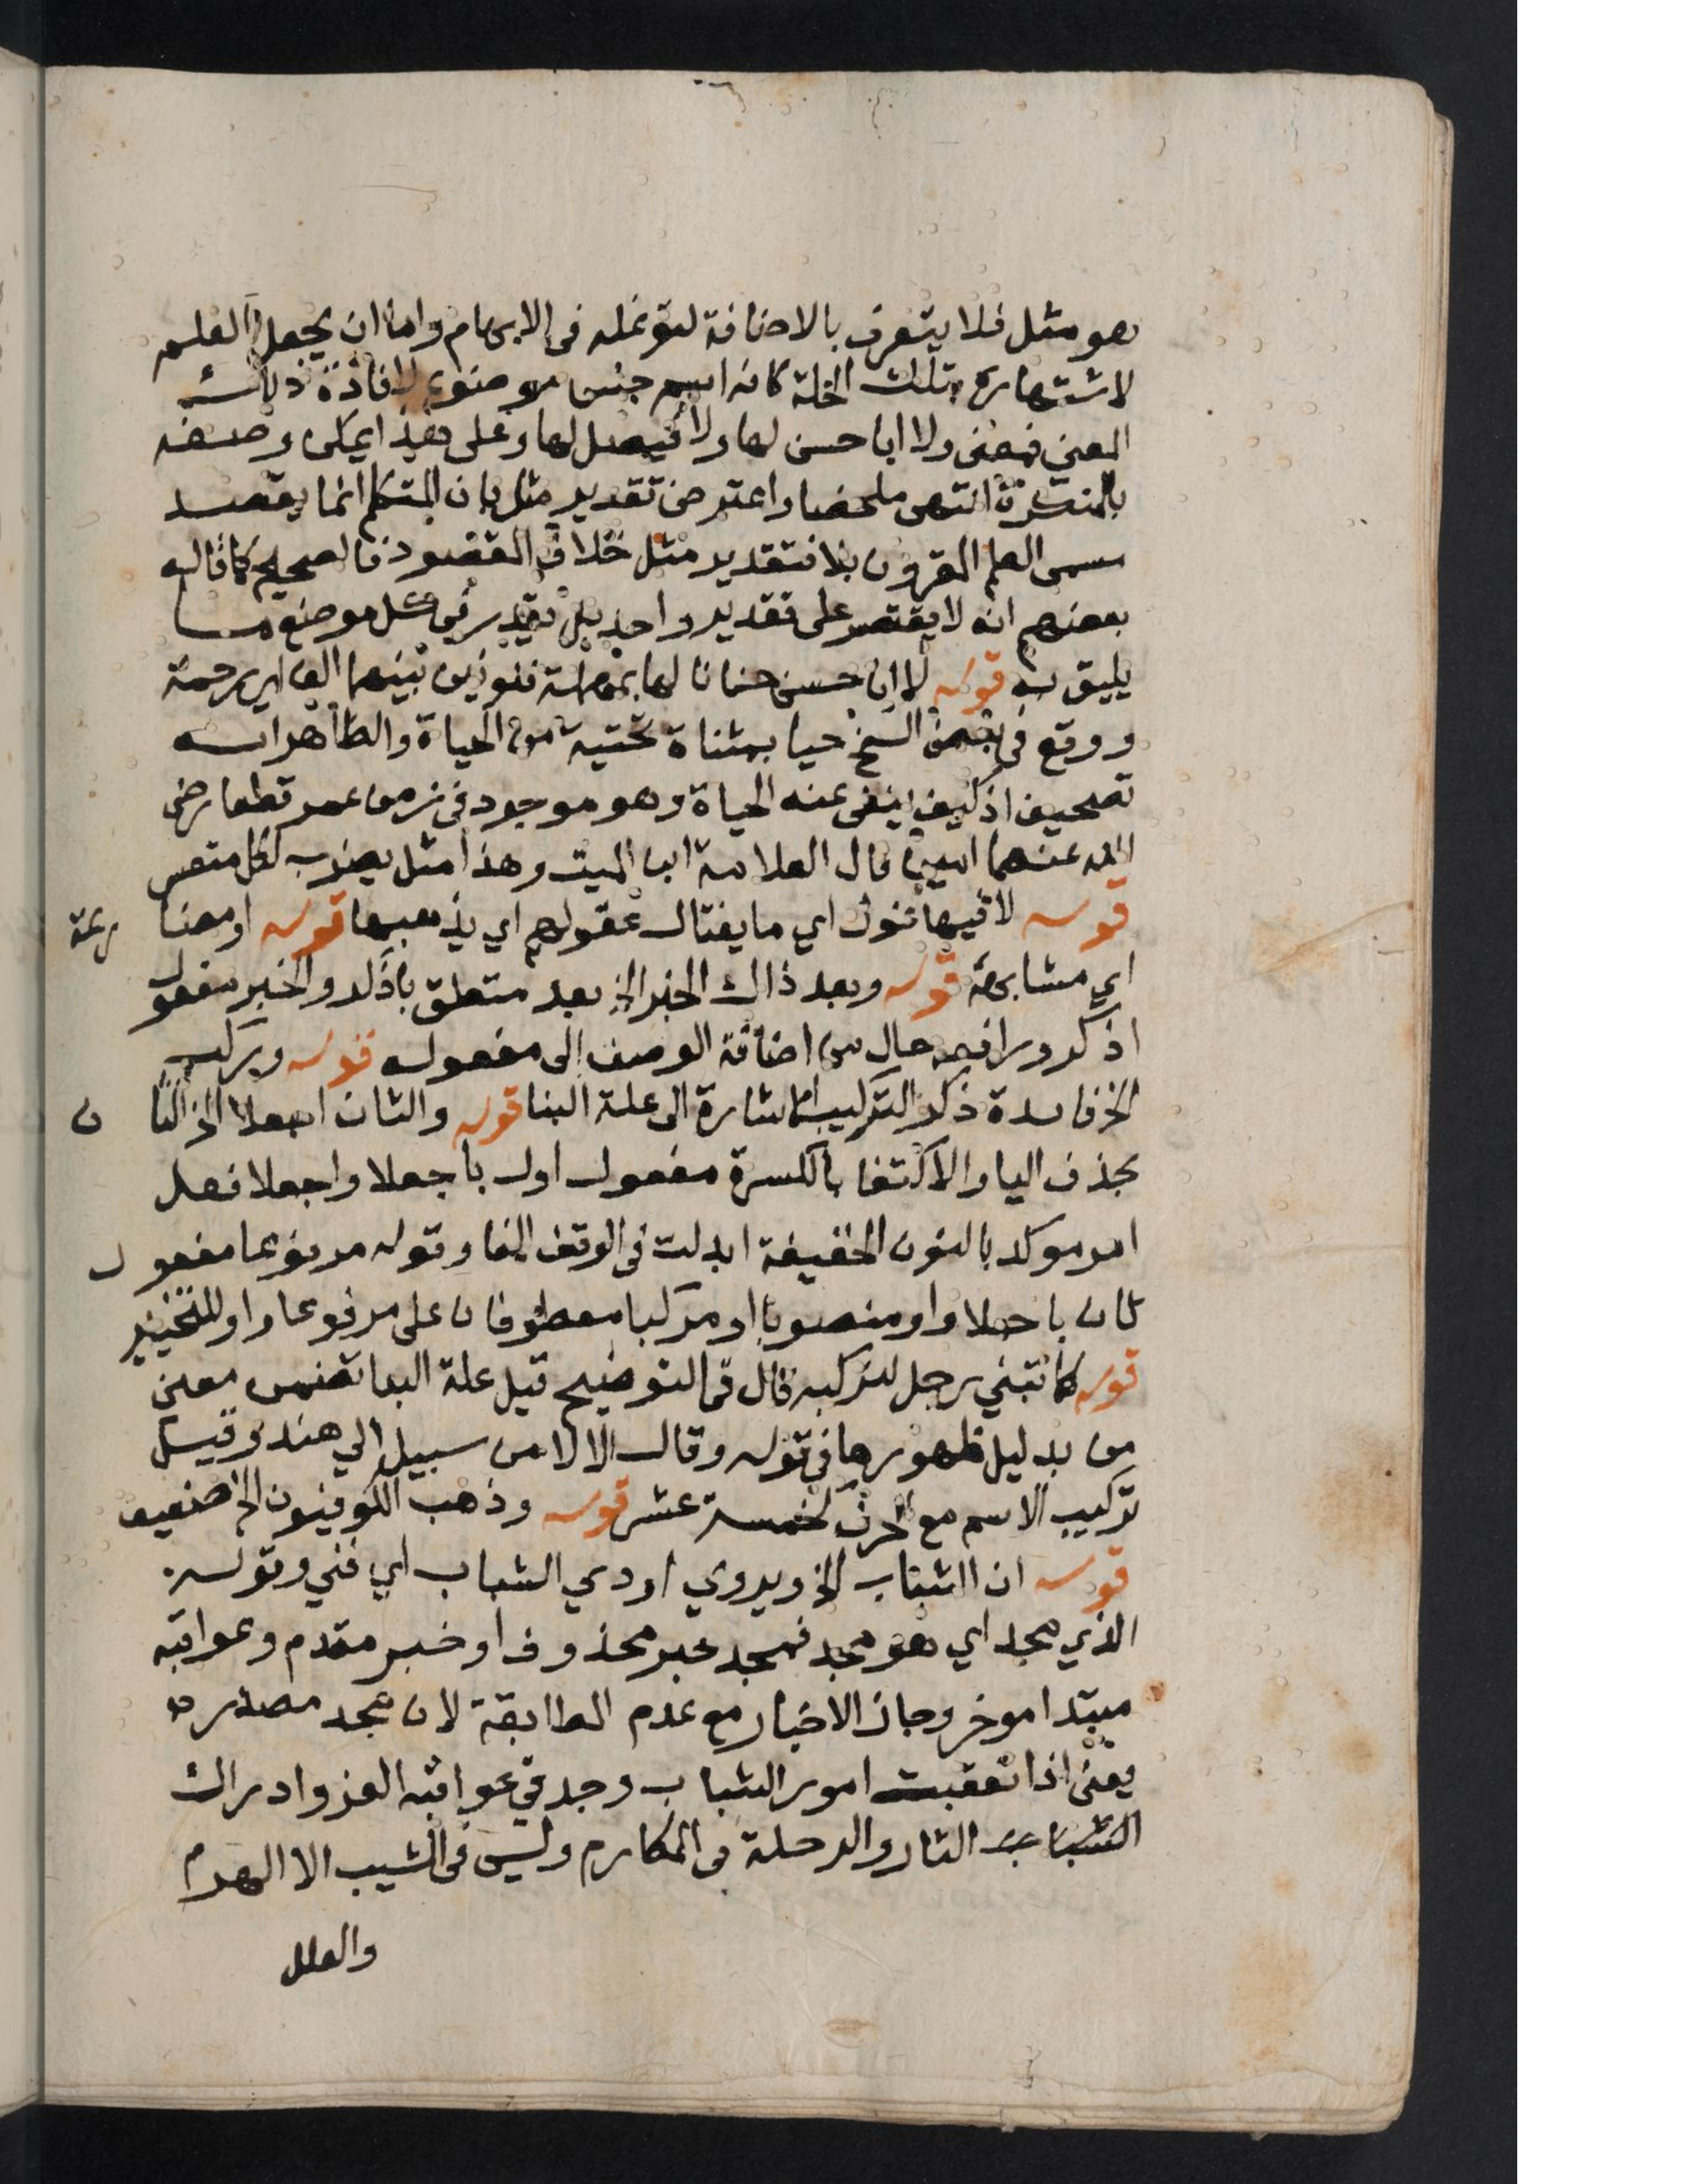 هو مثل فلا يتعرف بالاضافة لتوغله فى الابهام واما ان يجعل العلم
لاشتهاره بتلك الخلة كانه اسم جنس موضوع لافادة ذلك
المعنى فمعنى ولا ابا حسن لها ولا فيصل لها وعلى هذا يمكن وصفه
بالمنكرة انتهى ملخصا واعترض تقدير مثل بان المتكلم انما يقصد
مسمى العلم المقرون بلا فتقدير مثل خلاف المقصود فالصحيح كما قاله
بعضهم انه لا يقتصر على تقدير واحد بل يقدر فى كل موضع ما
يليق به قوله لا ابا حسن حنانا لها بمهملة فنونين بينهما الف اي رحمة
ووقع فى بعض النسخ حيا بمثناة تحتية من الحياة والظاهر انه
تصحيف اذ كيف ينفى عنه الحياة وهو موجود فى زمن عمر قطعا رضى
الله عنهما قال العلامة ابن الميت وهذا مثل يضرب لكل متعسر
قوله لا فيها غول اي ما يغتال عقولهم اي يذهبها قوله او مضا رعة
اي مشابهة قوله وبعد ذاك الخبر الخ بعد متعلق باذكر والخبر مفعول
اذكر ورافعه حال من اضافة الوصف الى مفعوله قوله وركب
الخ فايدة ذكر التركيب الاشارة الى علة البنا قوله والثان اجعلا الخ الثا ن
بحذف اليا والاكتفا بالكسرة مفعول اول باجعلا واجعلا فعل
امر موكد بالنون الخفيفة ابدلت فى الوقف الفا وقوله مرفوعا مفعول
ثان باجعلا واو منصوبا او مركبا معطوفان على مرفوعا واو للتخيير
قوله كما تبني رجل لتركبه قال فى التوضيح قيل علة البنا تضمن معنى
من بدليل ظهورها فى قوله وقال الا لا من سبيل الي هند وقيل
تركيب الاسم مع الحرف كخمسة عشر قوله وذهب الكوفيون الخ ضعيف
قوله ان الشباب الخ ويروي اودي الشباب اي فني وقوله
الذي مجد اي هو مجد فمجد خبر محذوف او خبر مقدم وعواقبه
مبتدا موخر وجاز الاخبار مع عدم المطابقة لان مجد مصدر
يعنى اذا تعقبت امور الشباب وجد فى عواقبه العز وادراك
الثار والرحلة فى المكارم وليس فى الشيب الا الهرم
والعلل